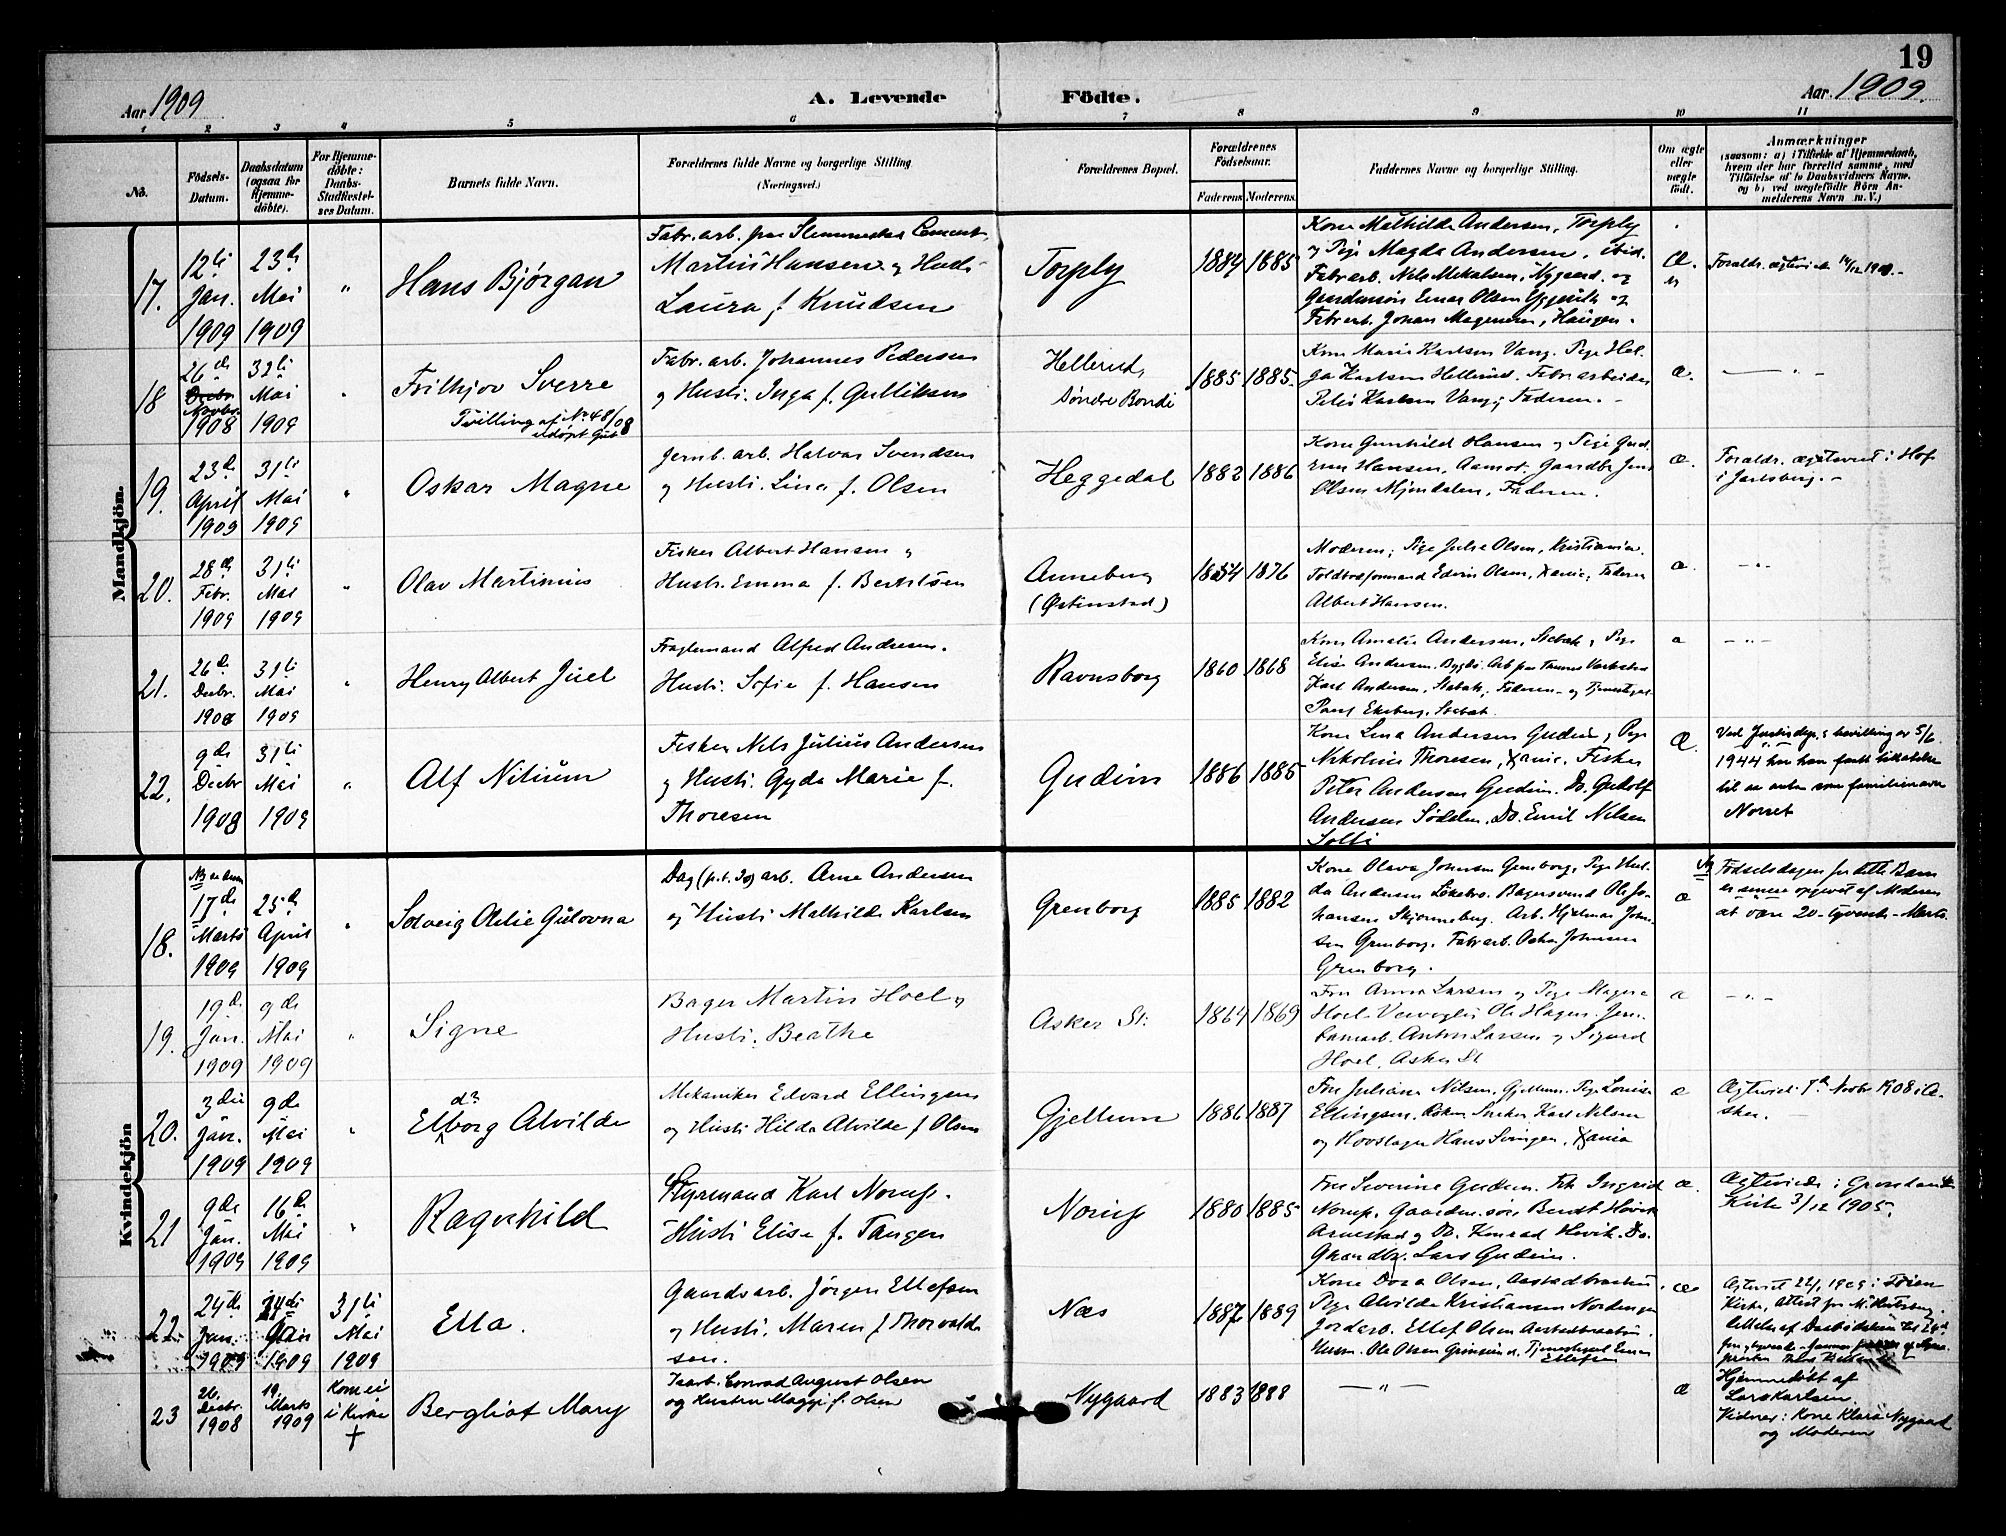 19
Aar 1909
A. Levende Födte.
Aar 1909.
1 2 3 4 5 6 7 8 9 10 11
No.
Födsels-
Datum.
Daabsdatum
(ogsaa for
Hjemme-
döbte).
For Hjemme-
döbte:
Daabs-
Stadfæstel-
ses Datum.
Barnets fulde Navn.
Forældrenes fulde Navne og borgerlige Stilling
(Næringsvei.)
Forældrenes Bopæl.
Forældrenes
Födselsaar.
Faderens Moderens.
Faddernes Navne og borgerlige Stilling.
Om ægte
eller
uægte
födt.
Anmærkninger
(saasom: a) i Tilfælde af Hjemmedaab,
hvem der har forrettet samme, med
Tilföielse af to Daabsvidners Navne.
og b) ved uægtefödte Börn An-
melderens Navn m. V.)
Mandkjön.
17.
12te
Jan.
1909
23de
Mai
1909
"
Hans Bjørgan
Fabr. arb. paa Slemmestad Cement,
Martin Hansen og Hust.
Laura f. Knudsen
Torply
1884 1885
Kone Mathilde Andersen, Torply
og Pige Magda Andersen, ibid.
Fabr arb. Nils Mikalsen, Nygaard. og
Gaardmansøn Einar Olsen og
Fabr arb. Johan Magnusen, Haugen.
Æ.
Foraldr. ægteviede 14/12 190 .-
18
26de
Novbr.
1908
31te
Mai
1909
"
Frithjov Sverre
Tvilling af No 48/08
udøpt Gut
Fabr. arb. Johannes Pedersen
og Hustr. Inga f. Gulliksen
Hellerud,
Søndre Bondi
1885 1885.
Kone Marie Karlsen Vang. Pige Hel-
ga Karlsen Hellerud. Fabr arbeider
Peder Karlsen Vang og Faderen. -
æ.
— " —
19.
23de
April
1909
31te
Mai
1909
"
Oskar Magne
Jernb. arb. Halvar Svendsen
og Hustr. Lina f. Olsen
Heggedal
1882 1886
Kone Gunhild Hansen og Pige Gud.
Hansen, Aamot. Gaardbr Jens
Olsen Mjøndalen, Faderen.
æ.
Foraldr. ægteviet i Hof
i Jarlsberg. -
20.
28de
Febr.
1909
31te
Mai
1909
"
Olav Martinius
Fisker Albert Hansen og
Hustr. Emma f. Bertelsen
Anneberg
(Østenstad)
1854 1876
Moderen; Pige Julie Olsen, Kristiania.
Toldbetjent Edvin Olsen, Xania; Faderen
Albert Hansen.
æ.
— " —
21.
26de
Decbr.
1908
31te
Mai
1909
"
Henry Albert Juel
Fragtemand Alfred Andresen.
Hustr. Sofie f. Hansen
Ravnsborg
1860 1868
Kone Amalie Andersen, Stabæk, Pige
Elise Andersen. Arb paa
Karl Andersen, Stabæk, Faderen og
Paul Ekeberg. Stabæk.
æ
— " —
22.
9de
Decbr
1908
31te
Mai
1909
"
Alf Nilium
Fisker Nels Julius Andersen
og Hustr. Gyda Marie f.
Thoresen
Gudim
1886 1885
Kone Lina Andersen Gudim og Pige
Nikoline Thoresen, Xania. Fisker
Peter Andersen Gudim. Do. Gudolf
Andersen Sødolen. Do. Emil Nelsen
Solli
Æ.
Ved Justisdep.s bevilling av 5/6.
1944 har han faatt tillatelse
til aa anta som familienavn
Norret
Kvindekjön
18.
17de
Marts
1909
25de
April
1909
"
Solveig Otilie Gulovna
Dag (p.t. ) arb. Arne Andersen
og Hustr Mathilde Karlsen
Grenborg
1885 1882
Kone Olava Johnsen Grenborg, Pige Hul-
da Andersen Løkebr. Bagersvend Ole Jo-
hansen Skjønneberg. Arb. Hjalmar John-
sen Grenborg. Fabr arb. Oskar Johnsen
Grenborg.
æ
NB
Fødselsdagen for dette Barn
er senere opgivet af Moderen
at være 20-tyvende-Marts.
19.
19de
Jan.
1909
9de
Mai
1909
"
Signe
Bager Martin Hoel og
Hustr. Beathe
Asker St.
1864 1869
Fru Anna Larsen og Pige Magna
Hoel. Ole Hagen. Jern-
banearb. Anton Larsen og Sigurd
Hoel, Asker St
æ
— " —
20.
3die
Jan.
1909
9de
Mai
1909
"
d?
Elborg Alvilde
Mekaniker Edvard Ellingsen
og Hustr Hilda Alvilde f Olsen
Gjellum
1886 1887
Fru Juliane Nilsen, Gjellum. Pige Louise
Ellingsen, Asker. Snekker Karl Nilsen
og Hovslager Hans Svingen, Xania
æ
Ægteviet 7de Novbr 1908 i A-
sker.
21
9de
Jan.
1909
16de
Mai
1909
"
Ragnhild
Styrmand Karl Norup.
Hustr Elise f. Tangen
Norup
1880 1885
Fru Severine Gudim. Frk Ingrid
Norup. Gaardm. søn Berndt Høvik
Arnestad og Do. Konrad Høvik. Do.
Gaardbr. Lars Gudim.
æ.
Ægteviede i
Kirke 3/12 1905.
22.
24de
Jan.
1909
1909
31te
Mai
1909
Ella.
Gaardsarb. Jørgen Ellefsen
og Hustr. Maren f Thorvald-
sen.
Næs
1887 1889
Kone Dora Olsen, Aastadbraaten
Pige Alvilde Kristiansen Nordengen
Jordarb. Ellef Olsen Aastadbraaten.
Husm. Ole Olsen Grinsund.
Ellefsen
æ
Ægteviet 22/1 1909 i Tøien
Kirke,
23
26.
Decbr.
1908
19.
Marts
1909
Kom ei
i Kirke
+
Bergliot Mary
Isarb. Conrad August Olsen
og Hustru Maggi f. Olsen
Nygaard
1883 1888
— " —
æ
Hjemmedöbt af
Lars Karlsen.
Vidner: Kone Klara Nygaard
og Moderen